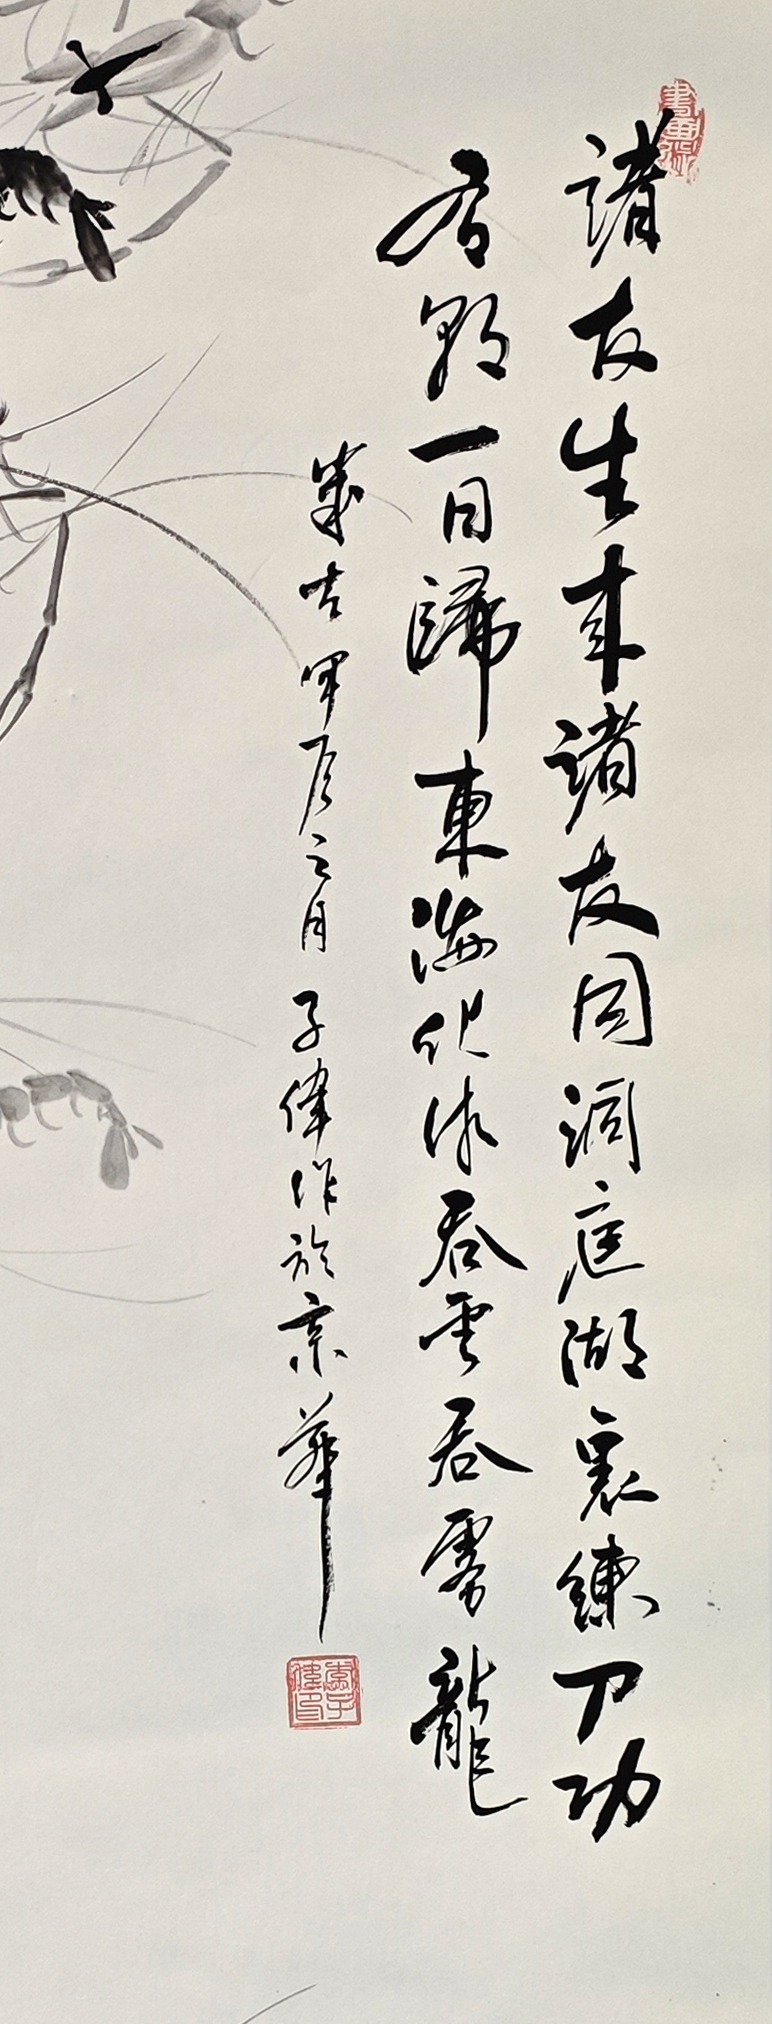 諸友生来諸友同洞庭湖裏練刀功
有朝一日歸東海化作吞雲吞霧龍
歲在甲辰月子偉作於京華